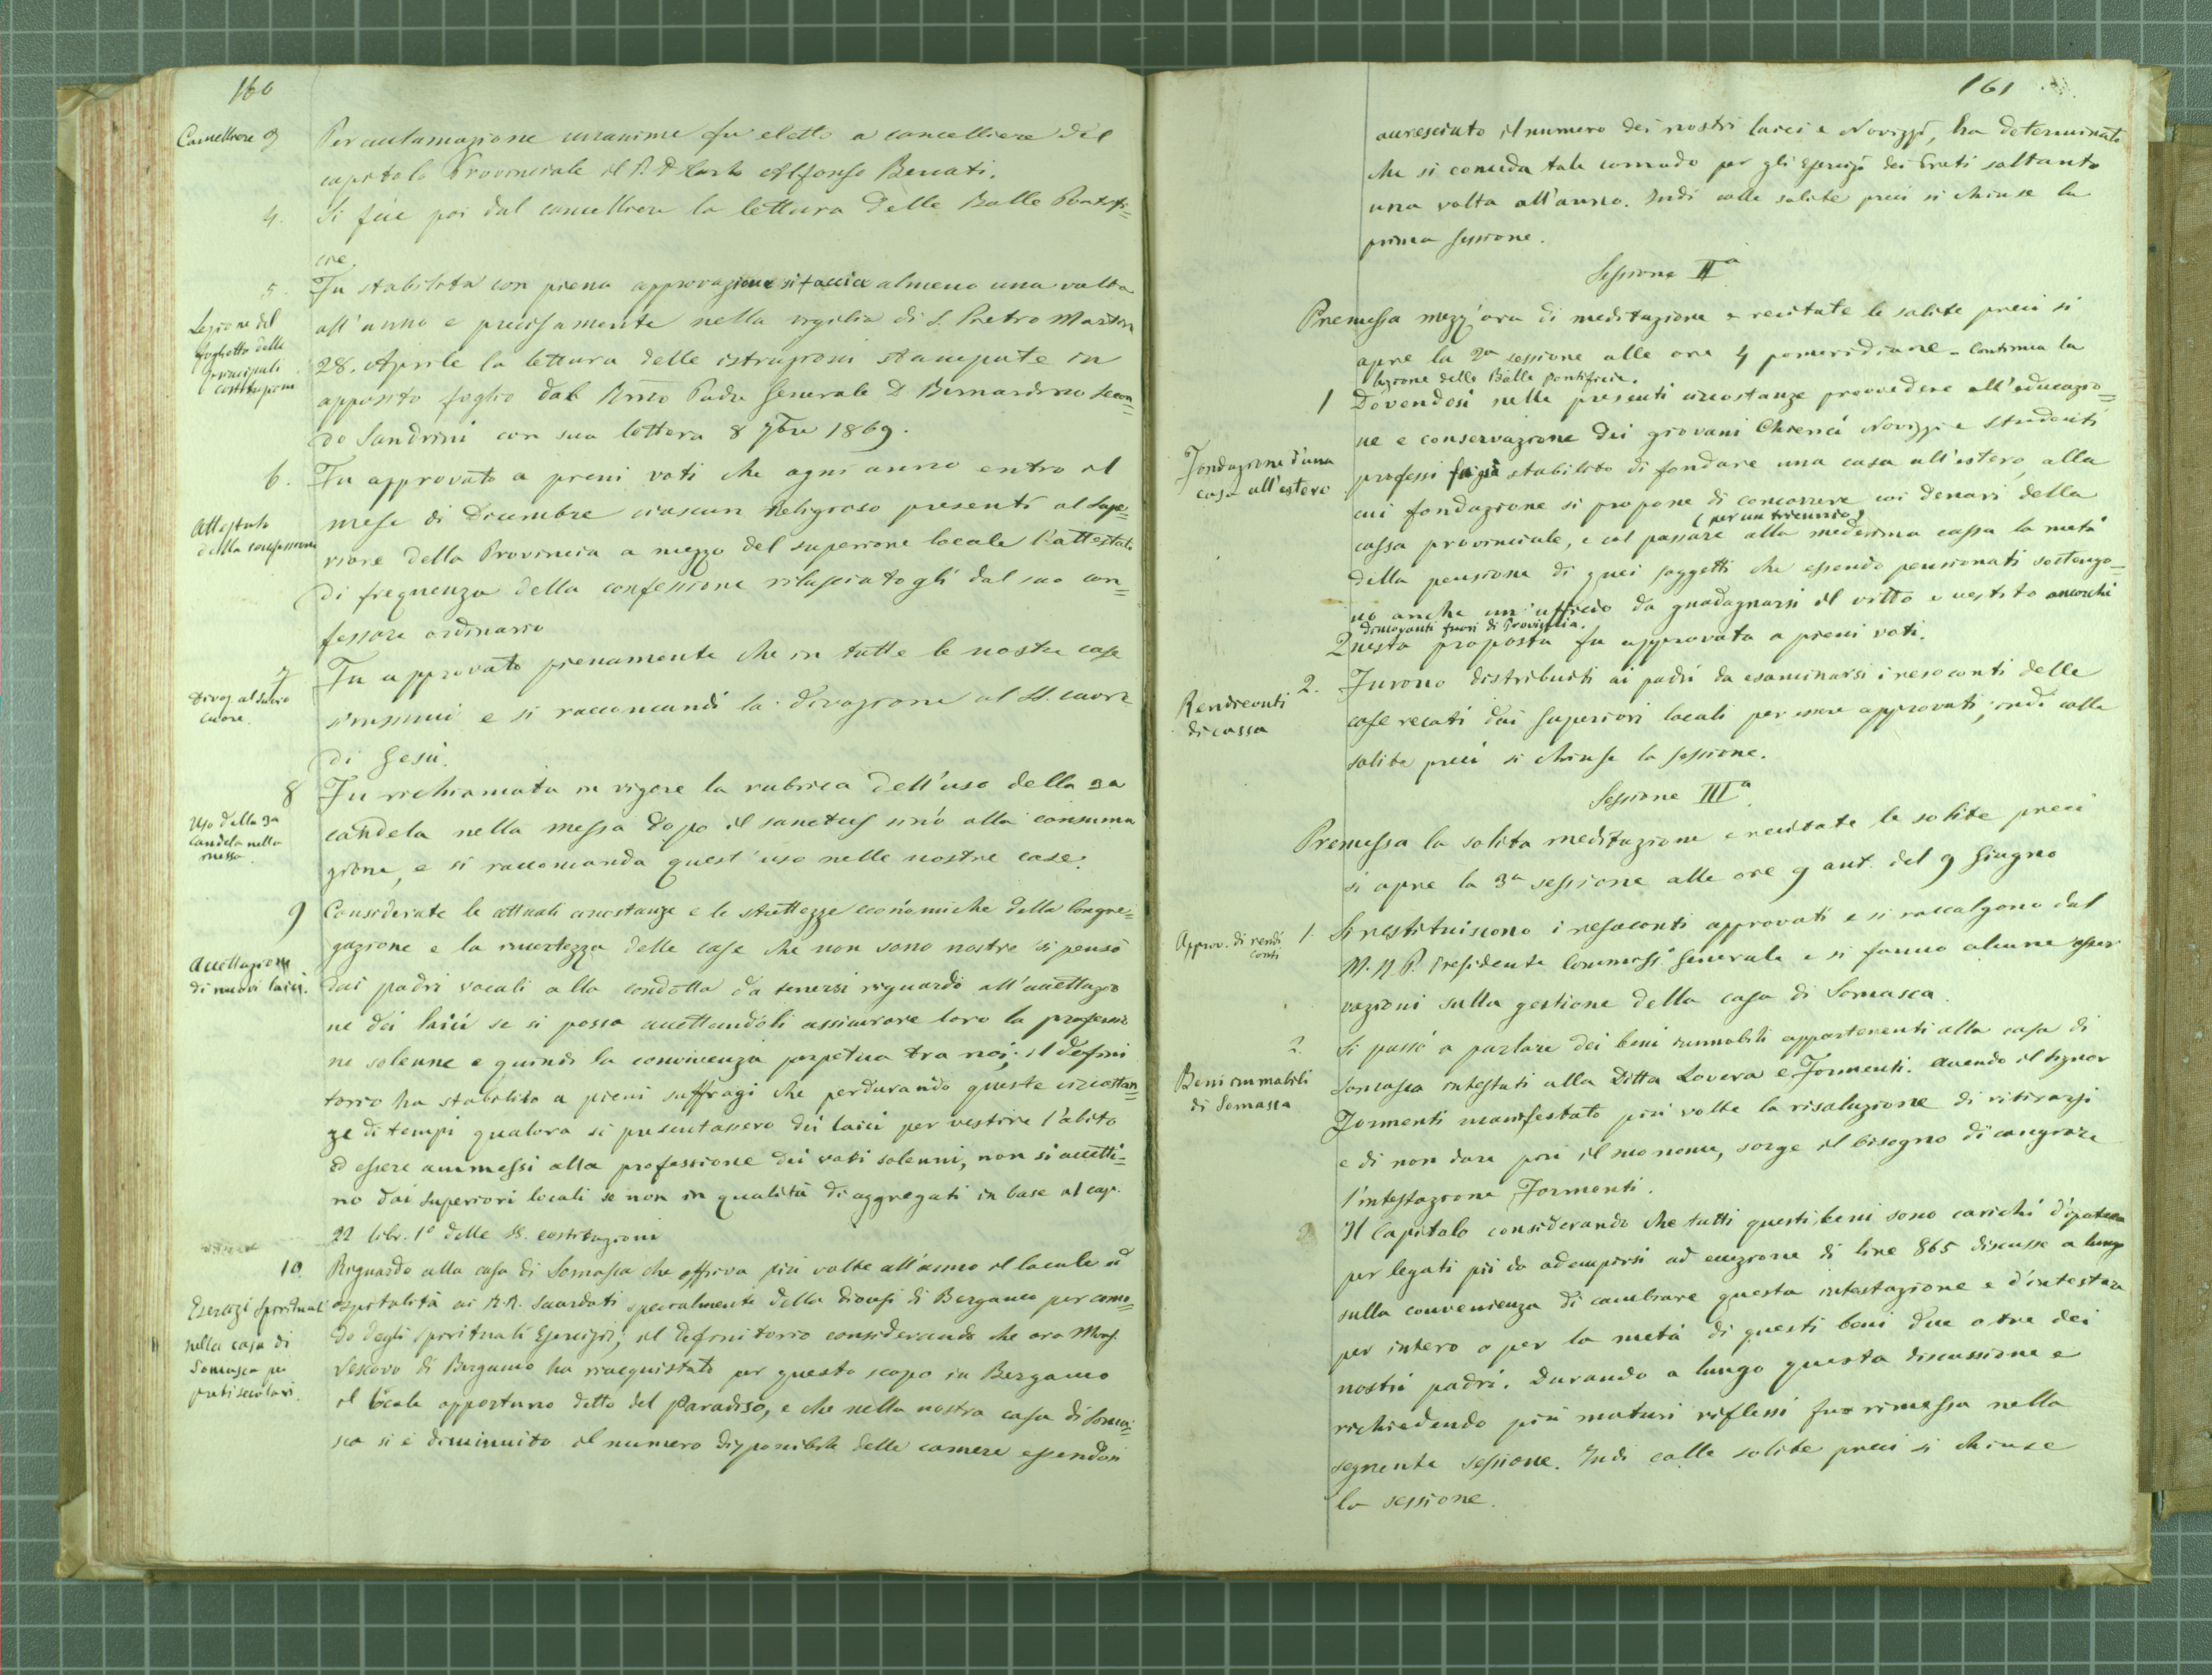 160
Cancelliere 3
Per acclamazione unanime fu eletto a cancelliere del
capitolo Provinciale il P. D. Carlo Alfonso Benati.
4. Si fece poi dal cancelliere la lettura delle Bolle Pontifi=
cie
5. Fu stabilita con piena approvazione si faccia almeno una volta
Lezione del
foglietto delle
principali
costituzioni
all'anno e precisamente nella vigilia di S. Pietro Martire
28. Aprile la lettura delle istruzioni stampate in
apposito foglio dal Rmo Padre Generale D Bernardino Secon=
do Sandrini con sua lettera 8 7bre 1869.
6. Fu approvato a pieni voti che ogni anno entro il
Attestato
della confessione
mese di Dicembre ciascun Religioso presenti al Supe=
riore della Provincia a mezzo del superiore locale l'attestato
di frequenza della confessione rilasciatogli dal suo con=
fessore ordinario
7 Fu approvato pienamente che in tutte le nostre case
Divoz al Sacro
Cuore.
s'insinui e si raccomandi la divozione al SS. cuore
di Gesù.
8 Fu richiamata in vigore la rubrica dell'uso della 3a
Uso della 3a
candela nella
messa.
candela nella messa dopo il sanctus sino alla consuma
zione, e si raccomanda quest'uso nelle nostre case.
9 Considerate le attuali circostanze e le strettezze economiche della Congre=
gazione e la incertezza delle case che non sono nostre si pensò
Accettazione
di nuovi laici.
dai padri vocali alla condotta da tenersi riguardo all'accettazio
ne dei laici se si possa accettandoli assicurare loro la professio
ne solenne e quindi la convivenza perpetua tra noi; il defini
torio ha stabilito a pieni suffragi che perdurando queste circostan=
ze di tempi qualora si presentassero dei laici per vestire l'abito
ed essere ammessi alla professione dei voti solenni, non si accetti=
no dai superiori locali se non in qualità di aggregati in base al cap.
22 libr. 1° delle SS. costituzioni
10. Riguardo alla casa di Somasca che offriva più volte all'anno il locale ed
Esercizi spirituali
nella casa di
Somasca pei
preti secolari.
ospitalità ai R.R. Sacerdoti specialmente della diocesi di Bergamo per como=
do degli spirituali Esercizi; il definitorio considerando che ora Mons.
Vescovo di Bergamo ha riacquistato per questo scopo in Bergamo
il locale opportuno detto del Paradiso, e che nella nostra casa di Soma=
sca si è diminuito il numero disponibile delle camere essendosi
161
accresciuto il numero dei nostri laici e Novizzi, ha determinato
che si conceda tale comodo per gli Esercizi dei Preti soltanto
una volta all'anno. Indi colle solite preci si chiuse la
prima sessione.
Sessione IIa
Premessa mezz'ora di meditazione e recitate le solite preci si
apre la 2a sessione alle ore 4 pomeridiane - Continua la
lezione delle Bolle pontificie.
1 Dovendosi nelle presenti circostanze provvedere all'educazio=
ne e conservazione dei giovani Chierici Novizzi e studenti
Fondazione d'una
casa all'estero
professi fu già stabilito di fondare una casa all'estero, alla
cui fondazione si propone di concorrere coi denari della
(per un triennio)
cassa provinciale, e col passare alla medesima cassa la metà
della pensione di quei soggetti che essendo pensionati sostengo=
no anche un'ufficio da guadagnarsi il vitto e vestito ancorchè
dimoranti fuori di Provincia.
Questa proposta fu approvata a pieni voti.
2. Furono distribuiti ai padri da esaminarsi i resoconti delle
Rendiconti
di cassa
case recati dai superiori locali per essere approvati; indi colle
solite preci si chiuse la sessione.
Sessione IIIa
Premessa la solita meditazione e recitate le solite preci
si apre la 3a sessione alle ore 9 ant. del 9 Giugno
Approv. di rendi
conti
1. Si restituiscono i resoconti approvati e si raccolgono dal
M. R. P. Presidente Commess. Generale e si fanno alcune osser
vazioni sulla gestione della casa di Somasca.
2. Si passò a parlare dei beni immobili appartenenti alla casa di
Beni immobili
di Somasca
Somasca intestati alla Ditta Lovera e Formenti. Avendo il signor
Formenti manifestato più volte la risoluzione di ritirarsi
e di non dare più il suo nome, sorge il bisogno di cangiare
l'intestazione Formenti.
3 Il Capitolo considerando che tutti questi beni sono carichi d'ipoteca
per legati pii da adempirsi ad erezione di lire 865 discusse a lungo
sulla convenienza di cambiare questa intestazione e d'intestare
per intero o per la metà di questi beni due o tre dei
nostri padri. Durando a lungo questa discussione e
richiedendo più maturi riflessi fu rimessa nella
seguente sessione. Indi colle solite preci si chiuse
la sessione.